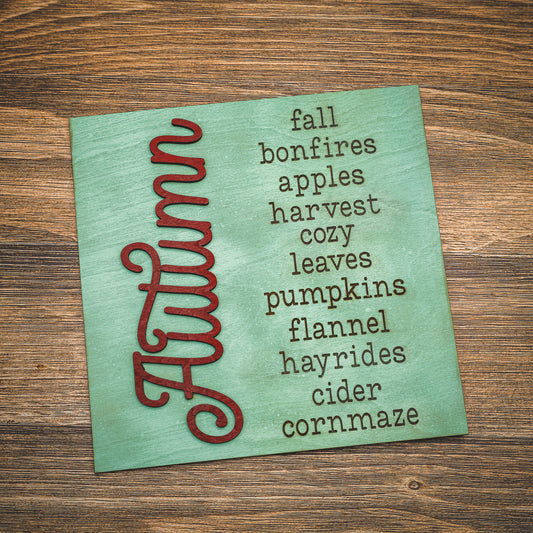 Autumn
fall
bonfires
apples
harvest
cozy
leaves
pumpkins
flannel
hayrides
cider
cornmaze